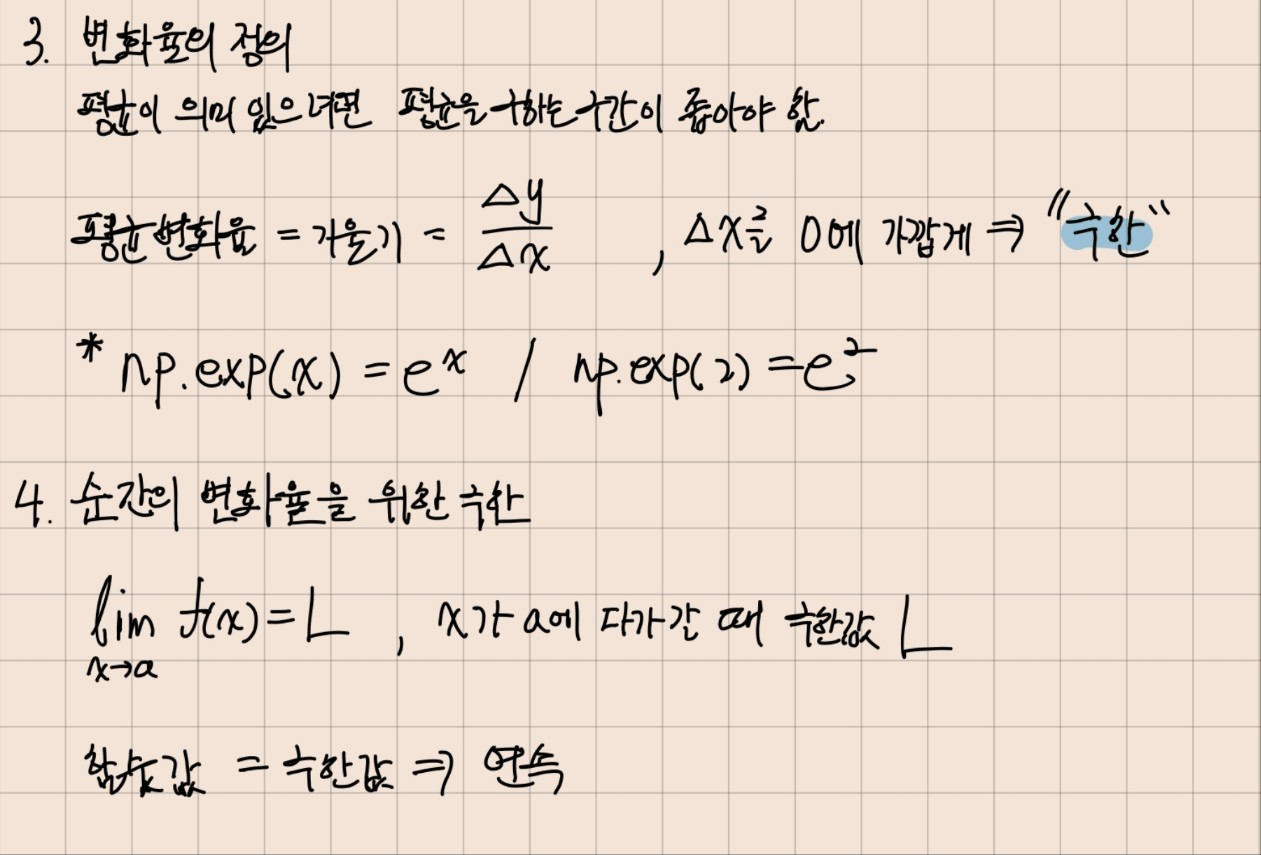 3. 변화율의 정의
평균이 의미 있으려면 평균을 구하는 구간이 좁아야 함.
평균변화율 = 기울기 = Δy/Δx , Δx를 0에 가깝게 ⇒ "극한"
* np.exp(x) = e^x / np.exp(2) = e^2
4. 순간의 변화율을 위한 극한
lim x→a f(x) = L , x가 a에 다가갈 때 극한값 L
함수값 = 극한값 ⇒ 연속